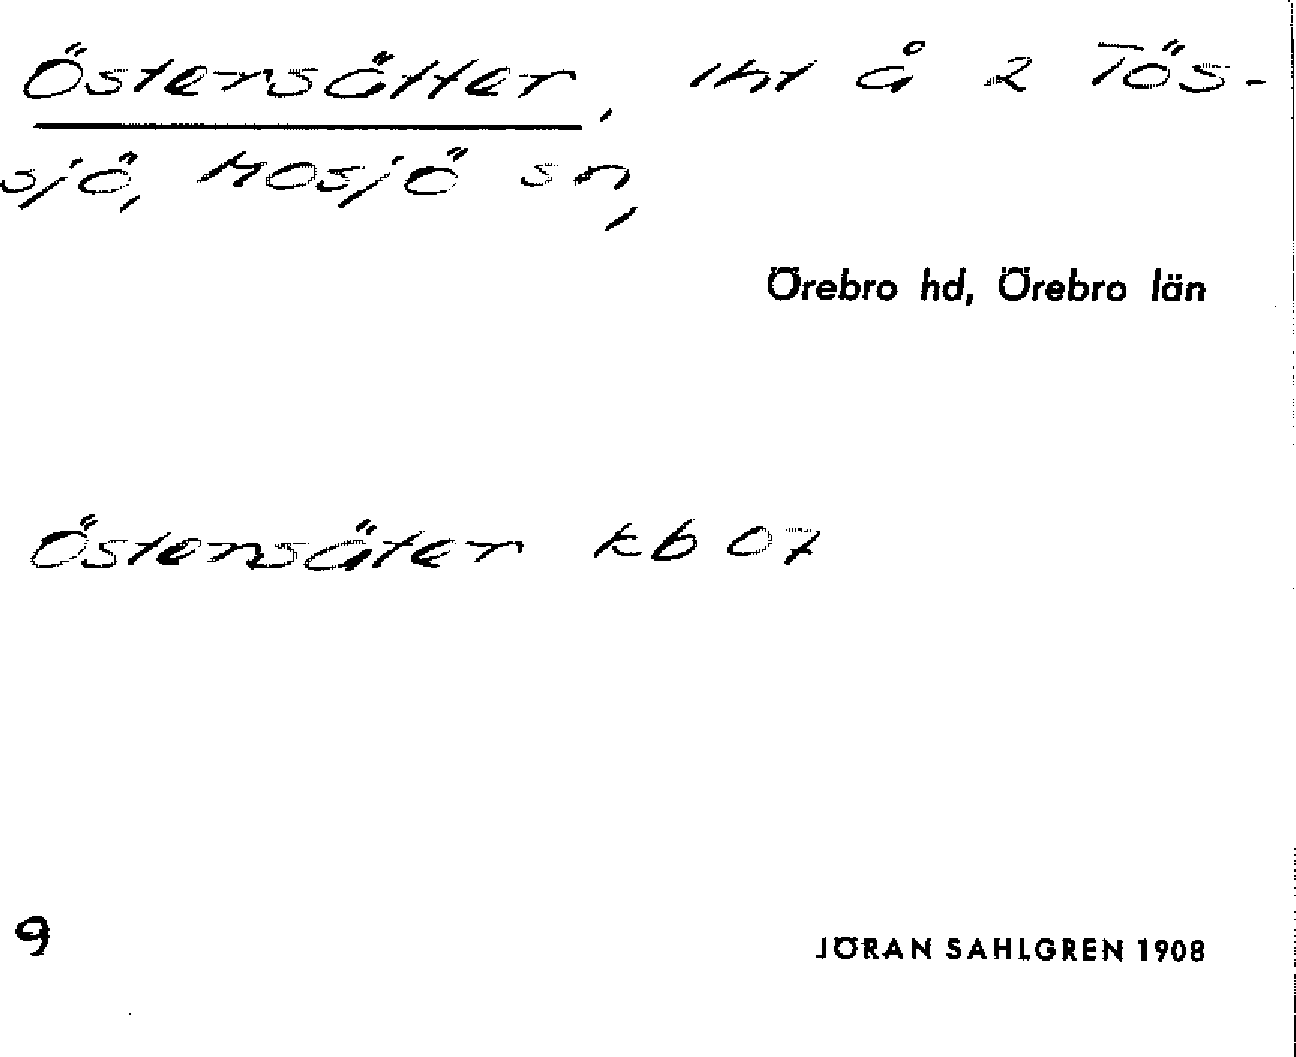 Östersätter, lht å 2 Tös-
sjö, Mosjö sn,
Örebro hd, Örebro län
Östersäter kb 07
9
JÖRAN SAHLGREN 1908